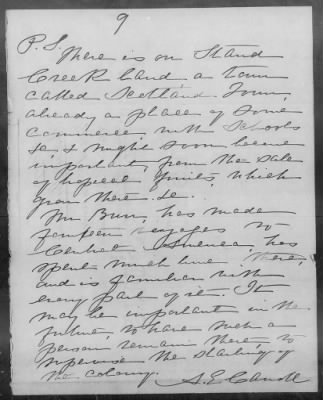 9
P.S.
There is on Stand
Creek land a town
called Scotland Town,
already a place of some
commerce, with schools
&c & might soon become
important, from the sale
of tropical fruits, which
grow there &c.
Mr Burr, has made
fourteen voyages to
Central America, has
spent much time there,
and is familiar with
every part of it. It
may be important in the
future, to have such a
person remain there, to
supervise the starting of
the colony.